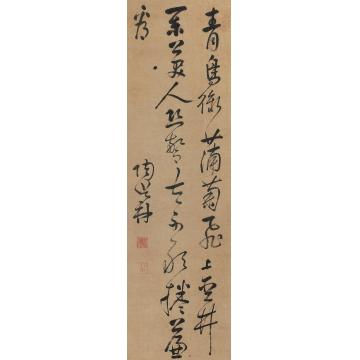 青鳥銜葡萄飛上金井
欄美人恐驚去不敢捲簾
看